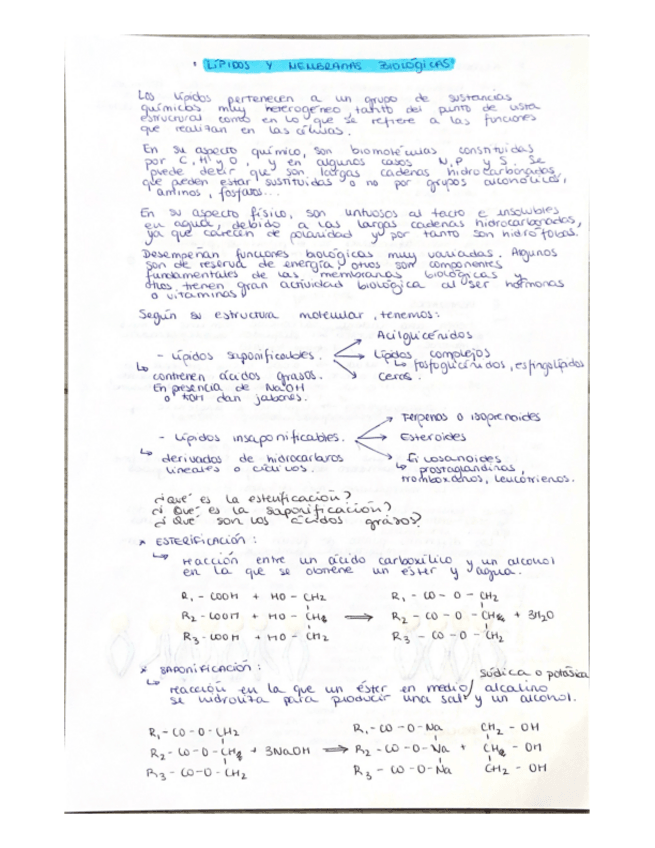 · LÍPIDOS Y MEMBRANAS BIOLÓGICAS
Los lípidos pertenecen a un grupo de sustancias
químicas muy heterogéneo, tanto del punto de vista
estructural como en lo que se refiere a las funciones
que realizan en las células.
En su aspecto químico, son biomoléculas constituidas
por C, H y O, y en algunos casos N, P y S. Se
puede decir que son largas cadenas hidrocarbonadas,
que pueden estar sustituidas o no por grupos alcohólicos,
aminos, fosfatos...
En su aspecto físico, son untuosos al tacto e insolubles
en agua, debido a las largas cadenas hidrocarbonadas,
ya que carecen de polaridad y por tanto son hidrófobas.
Desempeñan funciones biológicas muy variadas. Algunos
son de reserva de energía, otros son componentes
fundamentales de las membranas biológicas y
otros tienen gran actividad biológica al ser hormonas
o vitaminas
Según su estructura molecular, tenemos:
Acilglicéridos
- Lípidos saponificables. Lípidos complejos
↳ fosfoglicéridos, esfingolípidos
contienen ácidos grasos. Ceras.
En presencia de NaOH
o KOH dan jabones.
Terpenos o isoprenoides
- Lípidos insaponificables. Esteroides
↳ derivados de hidrocarburos Eicosanoides
lineales o cíclicos. ↳ prostaglandinas,
tromboxanos, leucotrienos.
¿Qué es la esterificación?
¿Qué es la saponificación?
¿Qué son los ácidos grasos?
* ESTERIFICACIÓN:
↳ reacción entre un ácido carboxílico y un alcohol
en la que se obtiene un éster y agua.
R₁ - COOH + HO - CH2 R₁ - CO - O - CH2
R2 - COOH + HO - CH → R2 - CO - O - CH + 3H2O
R3 - COOH + HO - CH2 R3 - CO - O - CH2
* SAPONIFICACIÓN: Sódica o potásica
↳ reacción en la que un éster en medio/ alcalino
se hidroliza para producir una sal y un alcohol.
R₁ - CO - O - CH2 R₁ - CO - O - Na CH2 - OH
R2 - CO - O - CH + 3NaOH → R2 - CO - O - Na + CH - OH
R3 - CO - O - CH2 R3 - CO - O - Na CH2 - OH